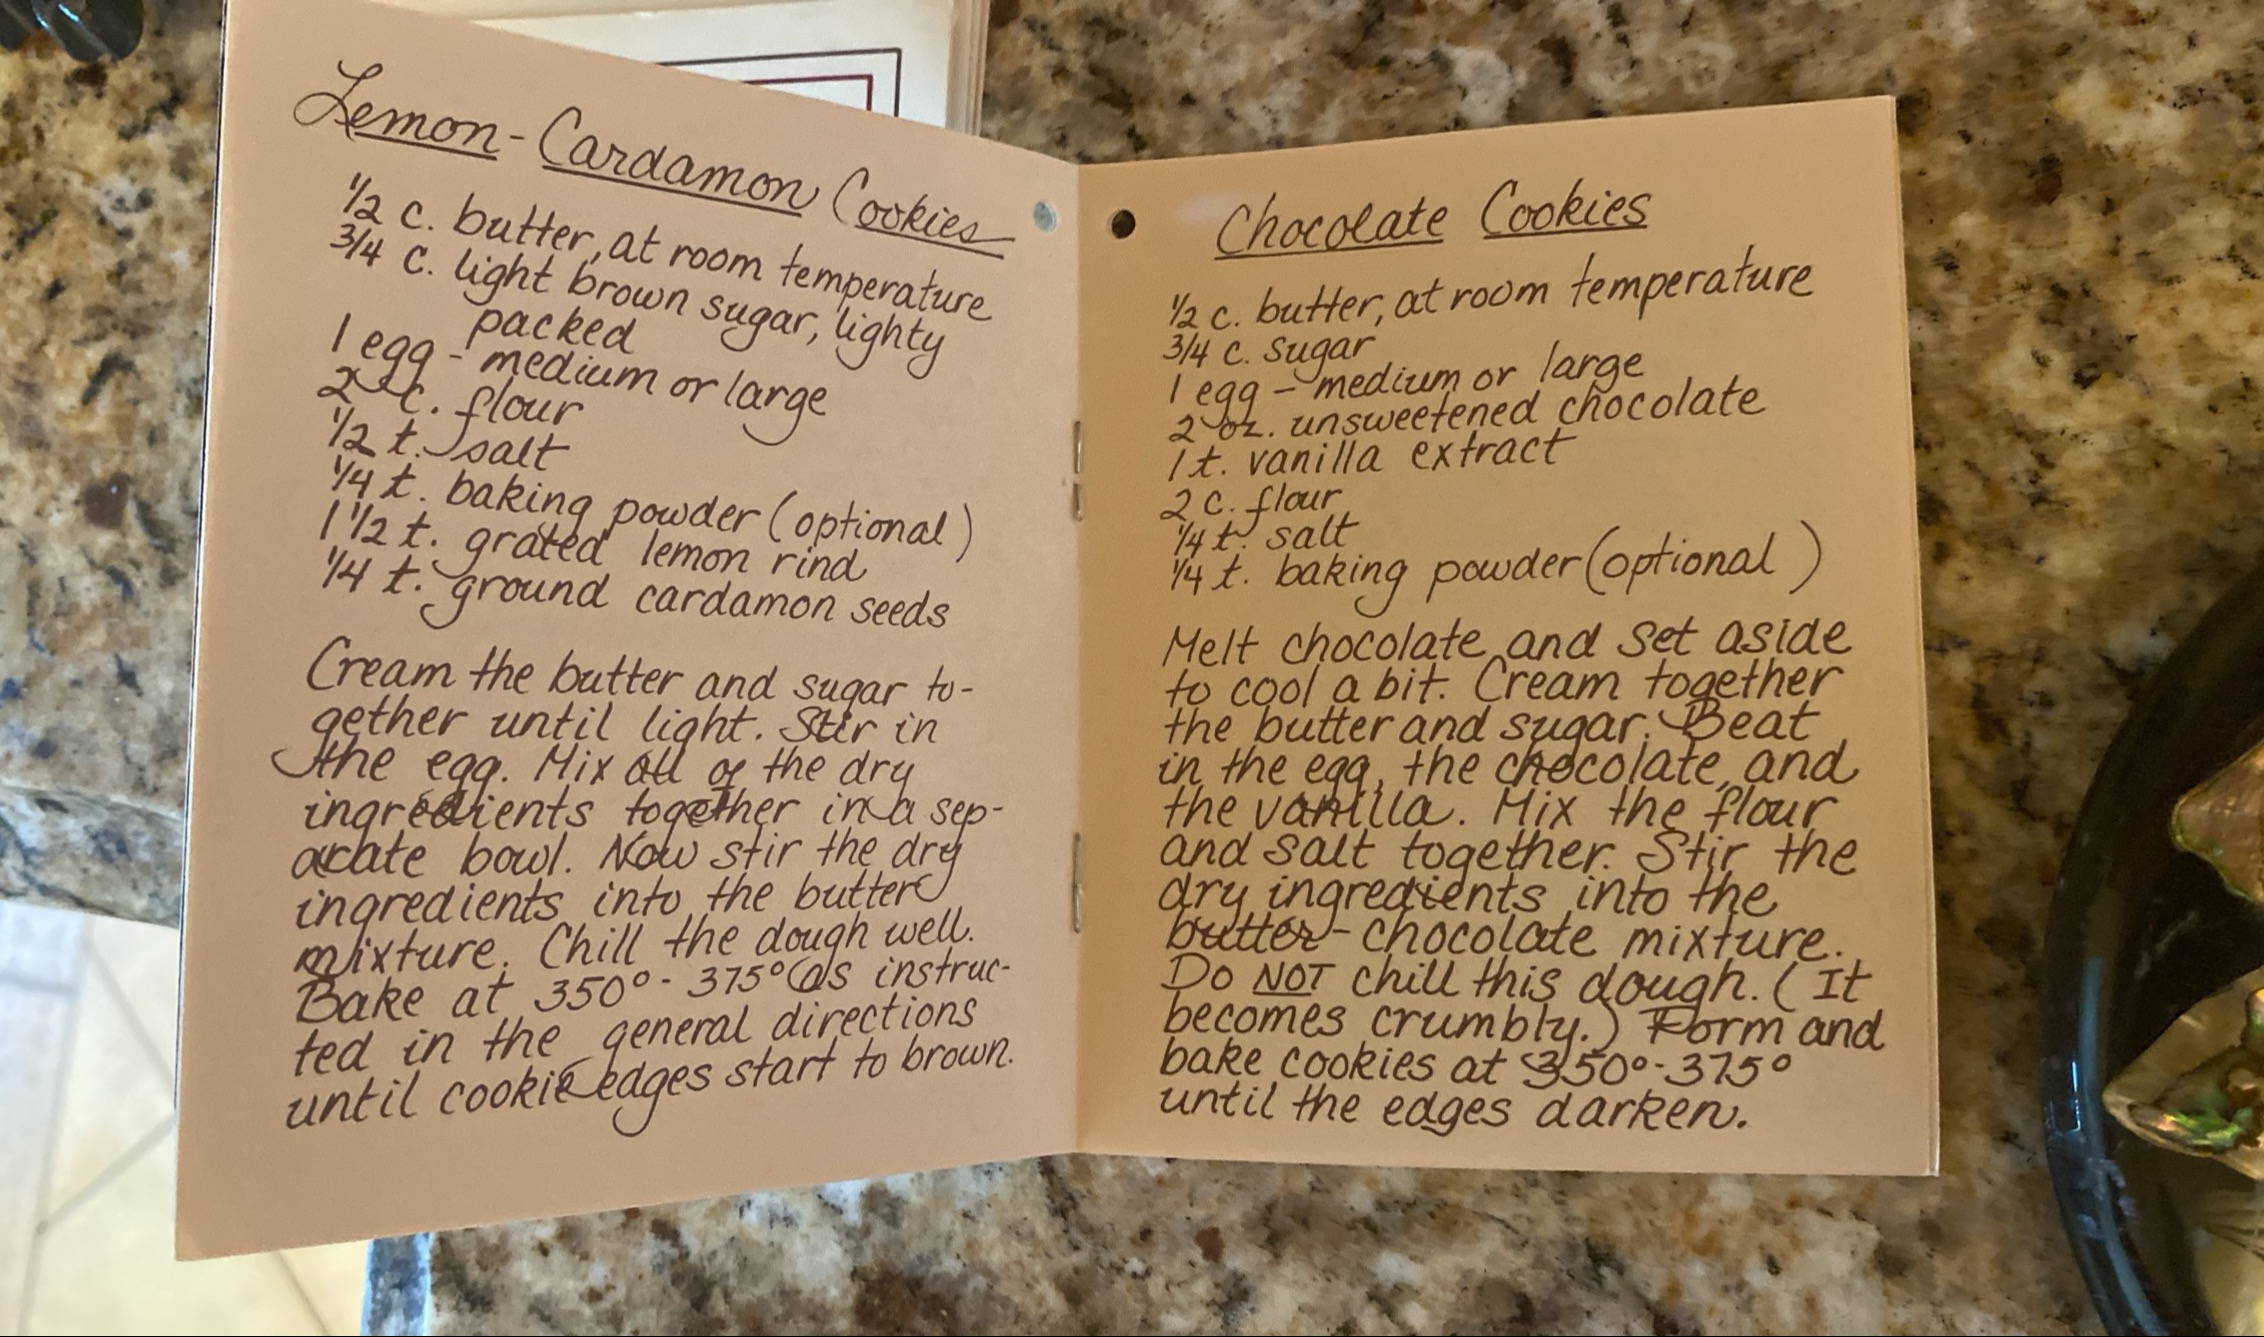 Lemon-Cardamon Cookies
1/2 c. butter, at room temperature
3/4 c. light brown sugar, lighty
packed
1 egg - medium or large
2 c. flour
1/2 t. salt
1/4 t. baking powder (optional)
1 1/2 t. grated lemon rind
1/4 t. ground cardamon seeds
Cream the butter and sugar to-
gether until light. Stir in
the egg. Mix all of the dry
ingredients together in a sep-
arate bowl. Now stir the dry
ingredients into the butter
mixture. Chill the dough well.
Bake at 350° - 375° as instruc-
ted in the general directions
until cookie edges start to brown.
Chocolate Cookies
1/2 c. butter, at room temperature
3/4 c. sugar
1 egg - medium or large
2 oz. unsweetened chocolate
1 t. vanilla extract
2 c. flour
1/4 t. salt
1/4 t. baking powder (optional)
Melt chocolate and set aside
to cool a bit. Cream together
the butter and sugar. Beat
in the egg, the chocolate, and
the vanilla. Mix the flour
and salt together. Stir the
dry ingredients into the
butter-chocolate mixture.
Do NOT chill this dough. (It
becomes crumbly.) Form and
bake cookies at 350°-375°
until the edges darken.